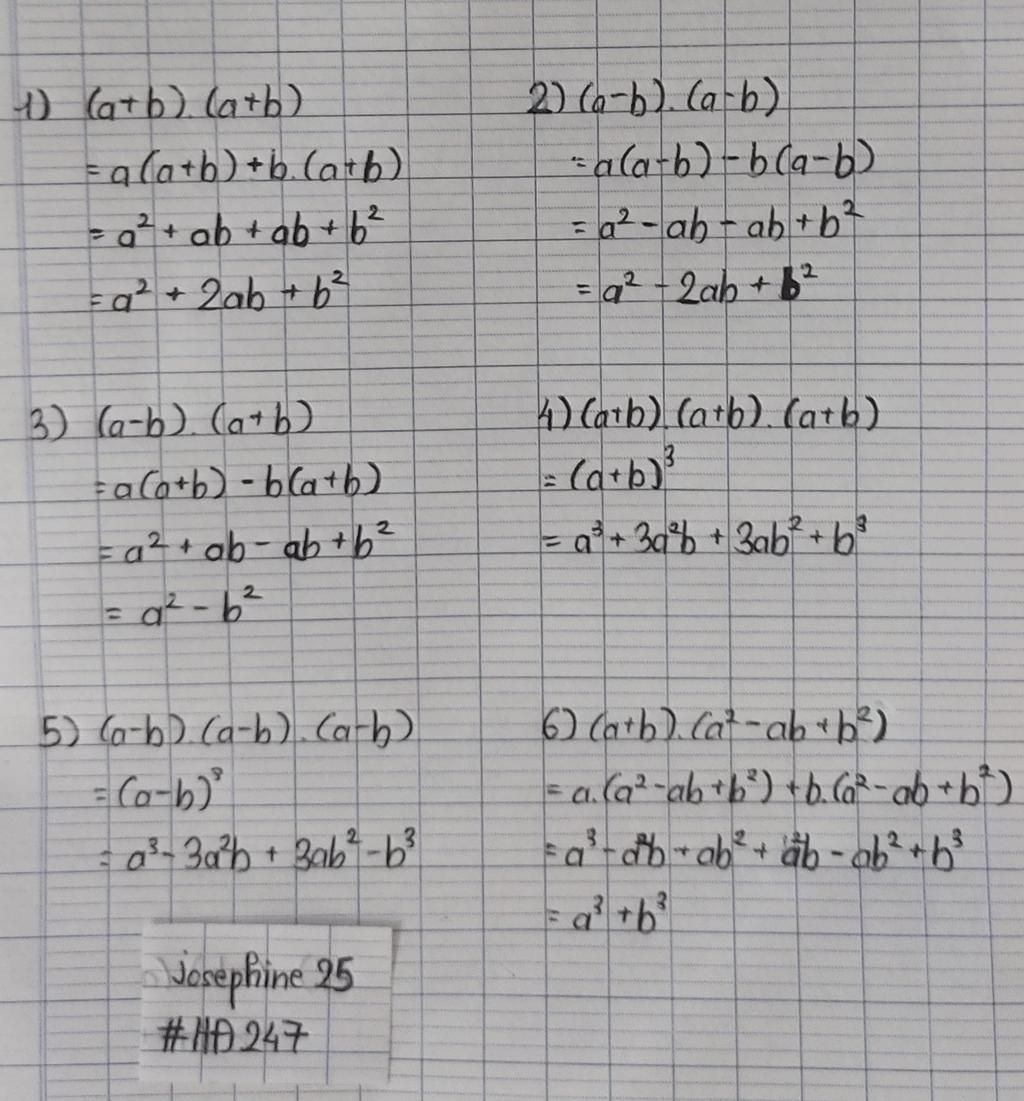 1) (a+b).(a+b)
= a(a+b)+b.(a+b)
= a² + ab + ab + b²
= a² + 2ab + b²
2) (a-b).(a-b)
= a(a-b) - b(a-b)
= a² - ab - ab + b²
= a² - 2ab + b²
3) (a-b).(a+b)
= a(a+b) - b(a+b)
= a² + ab - ab + b²
= a² - b²
4) (a+b).(a+b).(a+b)
= (a+b)³
= a³ + 3a²b + 3ab² + b³
5) (a-b).(a-b).(a-b)
= (a-b)³
= a³ - 3a²b + 3ab² - b³
6) (a+b).(a² - ab + b²)
= a.(a² - ab + b²) + b.(a² - ab + b²)
= a³ - a²b + ab² + a²b - ab² + b³
= a³ + b³
josephine 25
#HD247